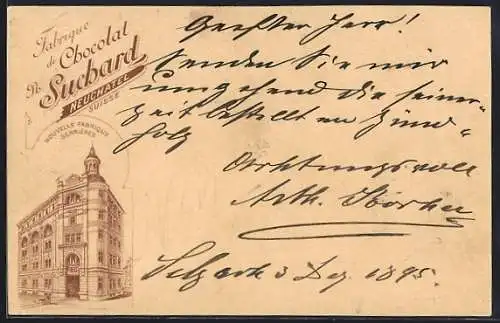 Fabrique
de Chocolat
Ph. Suchard
NEUCHATEL
SUISSE
NOUVELLE FABRIQUE
SERRIÈRES
Geehrter Herr!
Senden Sie mir
umgehend die seiner-
zeit bestellten Zünd-
holz
Achtungsvoll
Arth.
Selzach 3 Dez. 1895.